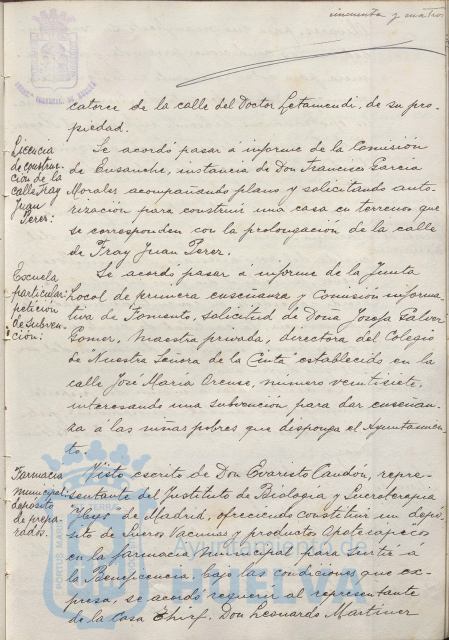 cincuenta y cuatro
catorce de la calle del Doctor Letamendi, de su pro-
piedad.
Licencia
de construc-
ción de la
calle Fray
Juan
Perez:
Se acordó pasar a informe de la Comisión
de Ensanche, instancia de Don Francisco Garcia
Morales acompañando plano y solicitando auto-
rización para construir una casa en terrenos que
se corresponden con la prolongación de la calle
de Fray Juan Perez.
Escuela
particular:
petición
de subven-
ción:
Se acordó pasar a informe de la Junta
Local de primera enseñanza y Comisión informa-
tiva de Fomento, solicitud de Doña Josefa
Gomer, Maestra privada, directora del Colegio
de "Nuestra Señora de la Cinta" establecido en la
calle José Maria número veintisiete,
interesando una subvención para dar enseñan-
za á las niñas pobres que disponga el Ayuntamien-
to.
Farmacia
municipal:
depósito
de prepa-
rados.
Visto escrito de Don Evaristo repre-
sentante del Instituto de Biologia y Sueroterapia
de Madrid, ofreciendo constituir un depó-
sito de Sueros Vacunas y producto
en la farmacia Municipal para surtir a
la Beneficencia, bajo las condiciones que ex-
presa, se acordó requerir al representante
de la Casa Don Leonardo Martinez
Ayuntamiento de
HUELVA